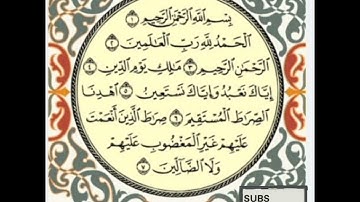 بِسْمِ اللَّهِ الرَّحْمَٰنِ الرَّحِيمِ ١
الْحَمْدُ لِلَّهِ رَبِّ الْعَالَمِينَ ٢
الرَّحْمَٰنِ الرَّحِيمِ ٣ مَالِكِ يَوْمِ الدِّينِ ٤
إِيَّاكَ نَعْبُدُ وَإِيَّاكَ نَسْتَعِينُ ٥ اهْدِنَا
الصِّرَاطَ الْمُسْتَقِيمَ ٦ صِرَاطَ الَّذِينَ أَنْعَمْتَ
عَلَيْهِمْ غَيْرِ الْمَغْضُوبِ عَلَيْهِمْ
وَلَا الضَّالِّينَ ٧
SUBS